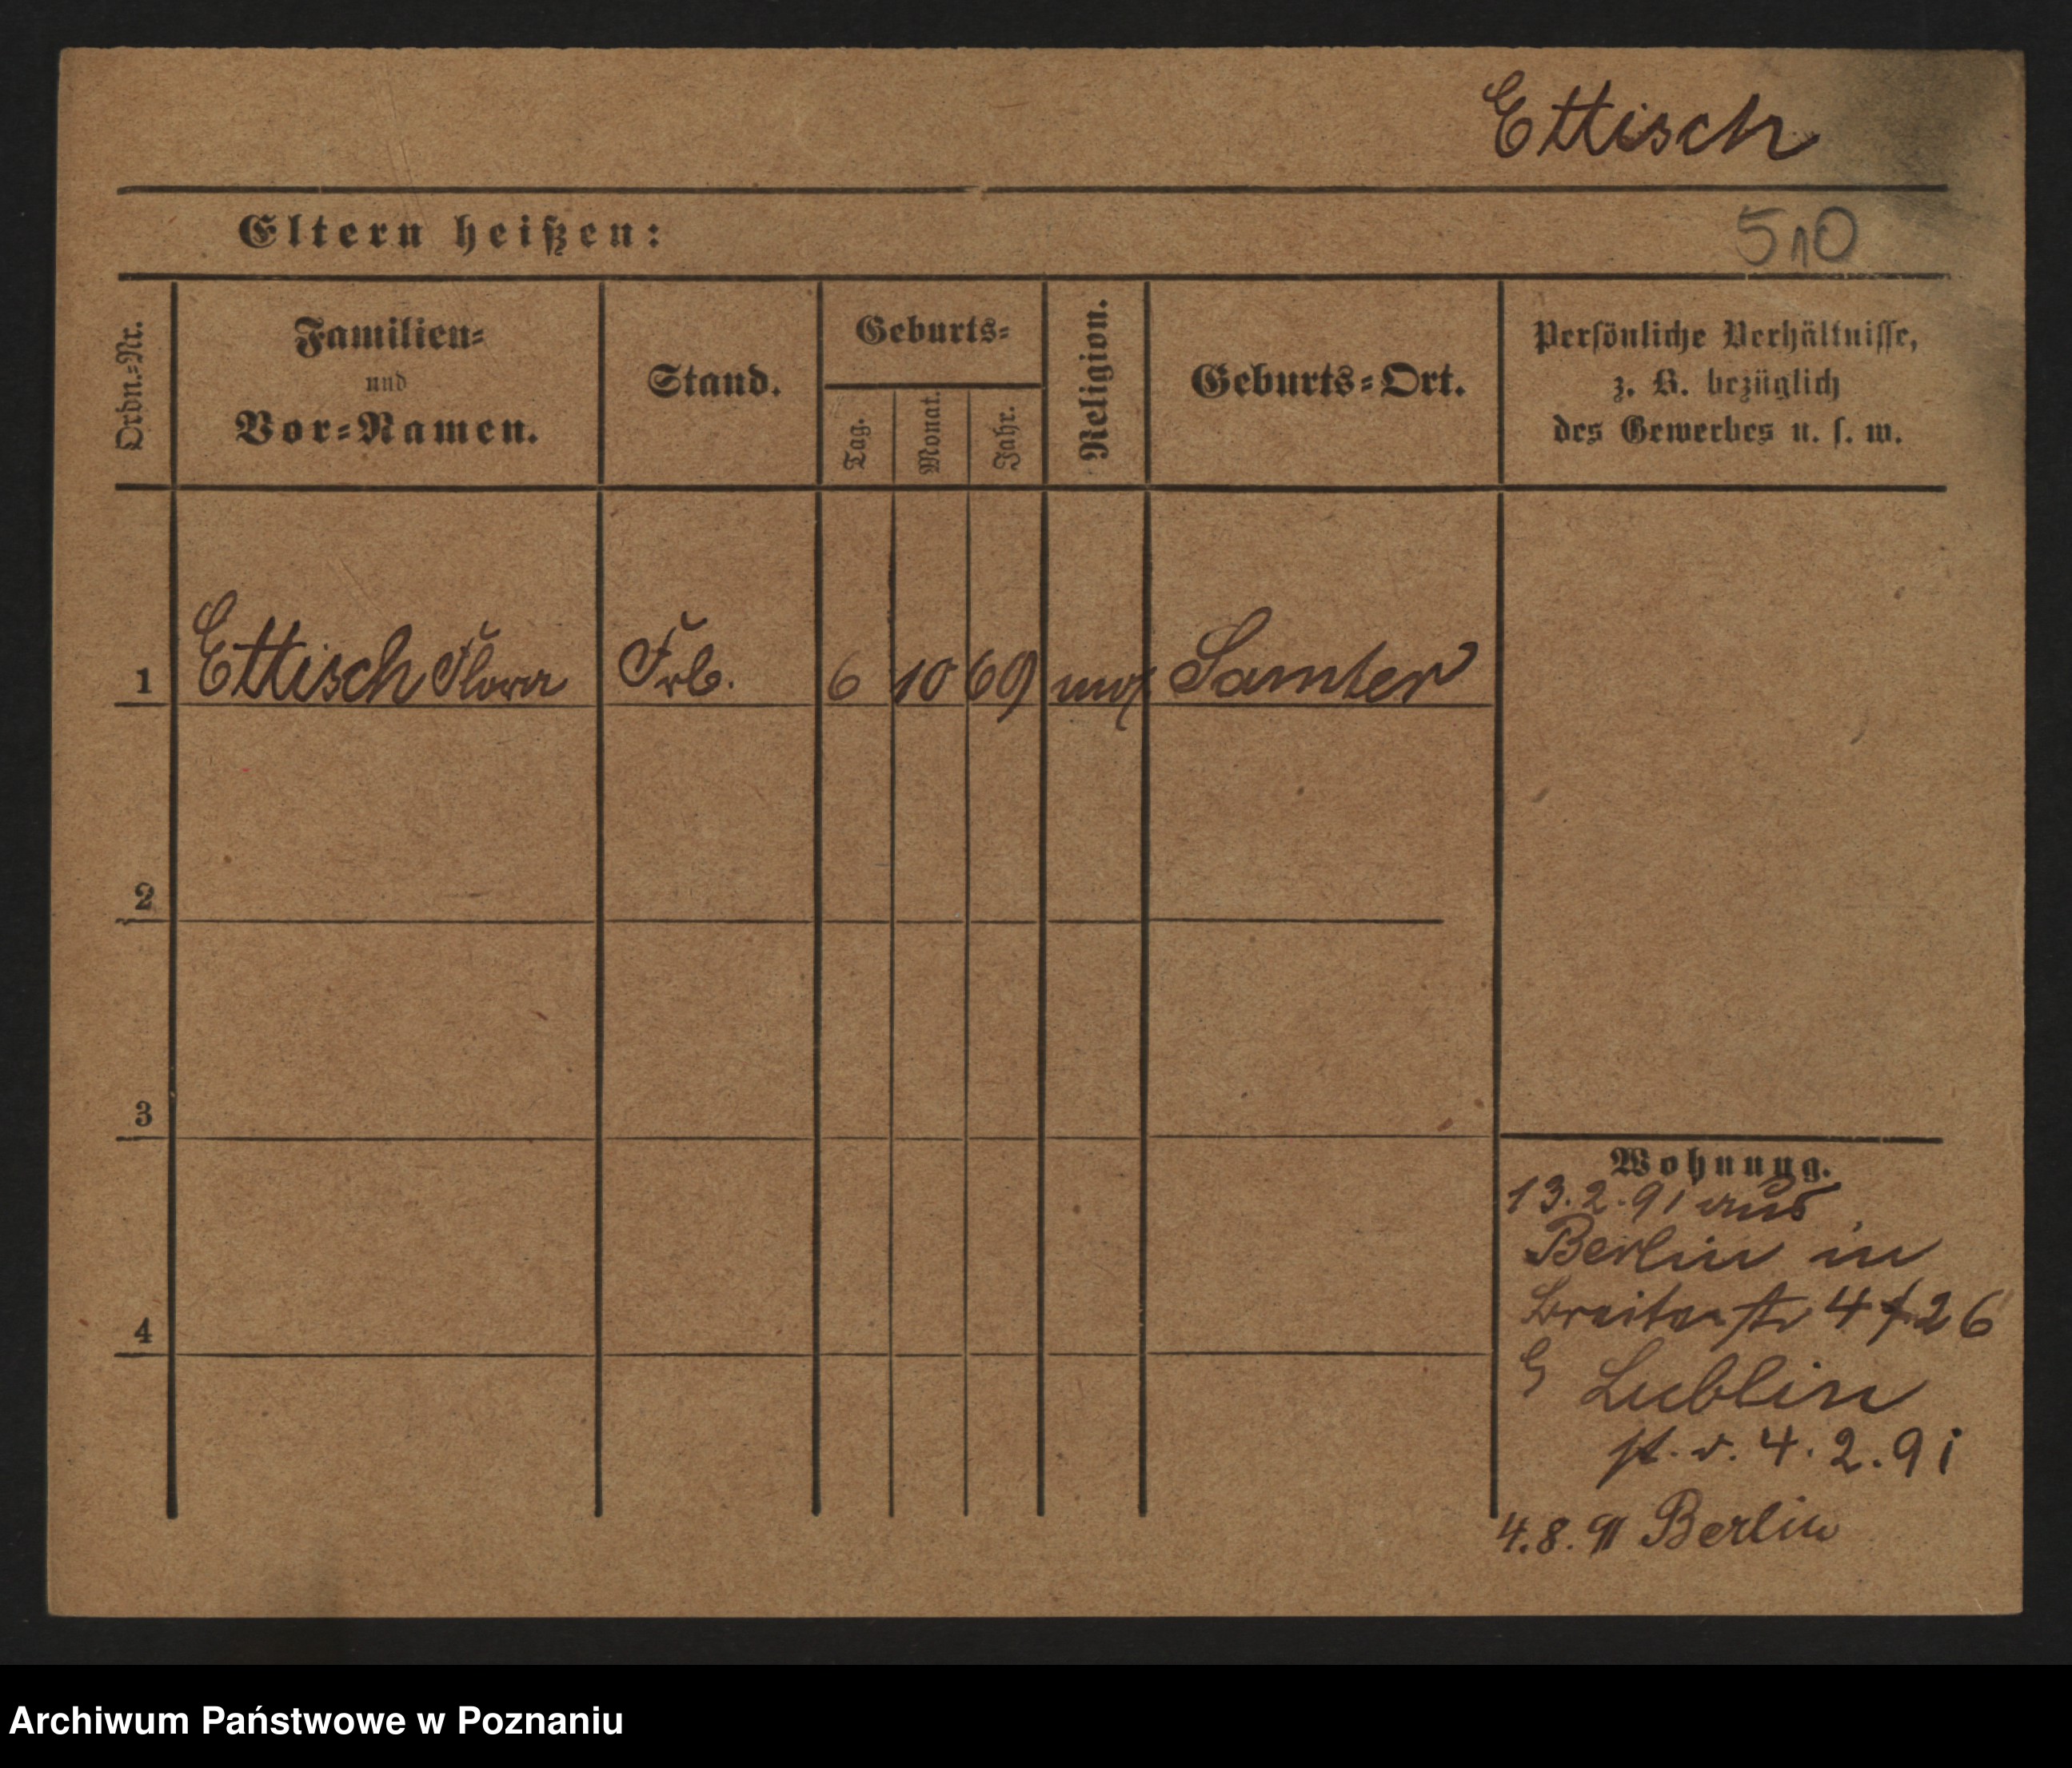 Ettisch
Eltern heißen:
510
Ordn.-Nr.
Familien-
und
Vor-Namen.
Stand.
Geburts-
Tag.
Monat.
Jahr.
Religion.
Geburts-Ort.
Persönliche Verhältnisse,
z. B. bezüglich
des Gewerbes u. s. w.
1 Ettisch Flora Frl. 6 10 69 mos Samter
2
3
4
Wohnung.
13.2.91 aus
Berlin in
Breitestr 4 26
Lublin
4.2.91
4.8.91 Berlin
Archiwum Państwowe w Poznaniu